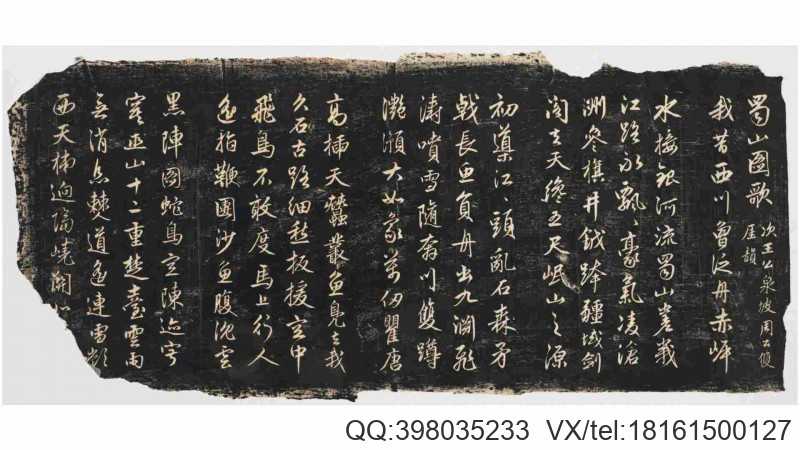 蜀山圖歌
次王公泉坡周公俊
崖韻
我昔西川曾泛舟赤岸
水接銀河流蜀山嵳峩
江路永飄飄豪氣凌滄
洲參旗井鉞跨疆域劍
閣去天纔五尺岷山之源
初導江江頭亂石森矛
戟長魚負舟出九淵飛
濤噴雪隨奔川雙蹲
灔澦大如象萬仞瞿唐
高插天蠶叢魚鳧之我
久石古路細愁扳援空中
飛鳥不敢度馬上行人
遙指鞭圖沙魚腹沈雲
黑陣圖蛇鳥空陳迹穹
窿巫山十二重楚臺雲雨
無消息棘道遙連雪
西天梯迥隔嶢關
QQ:398035233 VX/tel:18161500127